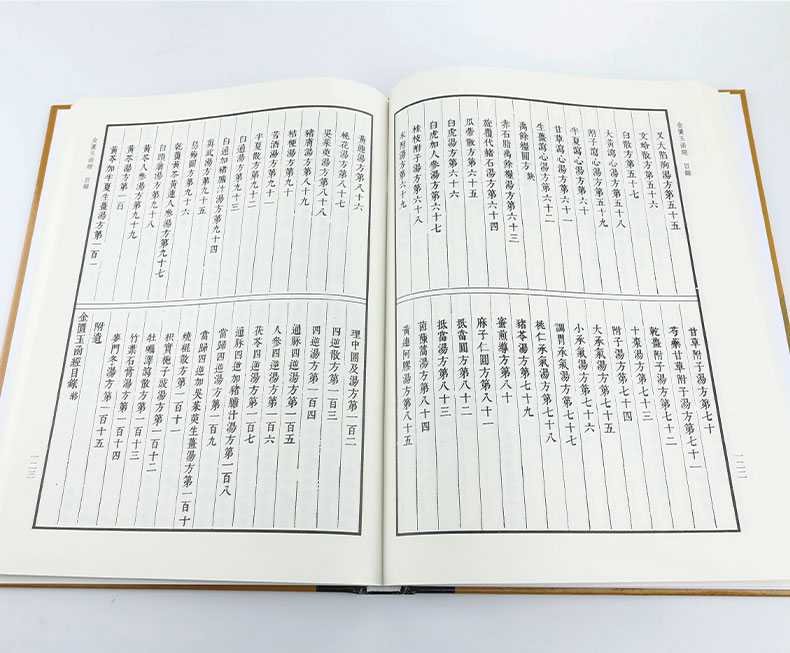 金匱玉函經 目錄
又大陷胸湯方第五十五
文蛤散方第五十六
白散方第五十七
大黃瀉心湯方第五十八
附子瀉心湯方第五十九
半夏瀉心湯方第六十
甘草瀉心湯方第六十一
生薑瀉心湯方第六十二
禹餘糧圓方闕
赤石脂禹餘糧湯方第六十三
旋覆代赭石湯方第六十四
瓜蒂散方第六十五
白虎湯方第六十六
白虎加人參湯方第六十七
桂枝附子湯方第六十八
朮附湯方第六十九
甘草附子湯方第七十
芍藥甘草附子湯方第七十一
乾薑附子湯方第七十二
十棗湯方第七十三
附子湯方第七十四
大承氣湯方第七十五
小承氣湯方第七十六
調胃承氣湯方第七十七
桃仁承氣湯方第七十八
豬苓湯方第七十九
蜜煎導方第八十
麻子仁圓方第八十一
抵當圓方第八十二
抵當湯方第八十三
茵蔯蒿湯方第八十四
黃連阿膠湯方第八十五
一二二
黃連湯方第八十六
桃花湯方第八十七
吳茱萸湯方第八十八
豬膚湯方第八十九
桔梗湯方第九十
苦酒湯方第九十一
半夏散方第九十二
白通湯方第九十三
白通加豬膽汁湯方第九十四
真武湯方第九十五
烏梅圓方第九十六
乾薑黃芩黃連人參湯方第九十七
白頭翁湯方第九十八
黃芩人參湯方第九十九
黃芩湯方第一百
黃芩加半夏生薑湯方第一百一
理中圓及湯方第一百二
四逆散方第一百三
四逆湯方第一百四
通脉四逆湯方第一百五
人參四逆湯方第一百六
茯苓四逆湯方第一百七
通脉四逆加豬膽汁湯方第一百八
當歸四逆湯方第一百九
當歸四逆加吳茱萸生薑湯方第一百十
燒裩散方第一百十一
枳實梔子豉湯方第一百十二
牡蠣澤瀉散方第一百十三
竹葉石膏湯方第一百十四
麥門冬湯方第一百十五
附遺
金匱玉函經目錄終
金匱玉函經 目錄
一二三